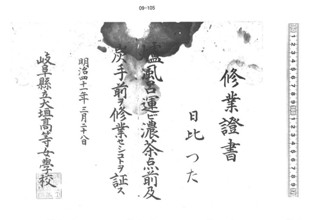 09-105
修業證書
日比つた
風呂運ビ濃茶点前及
炭手前ヲ修業セシコトヲ証ス
明治四十二年三月二十八日
岐阜縣立大垣高等女學校